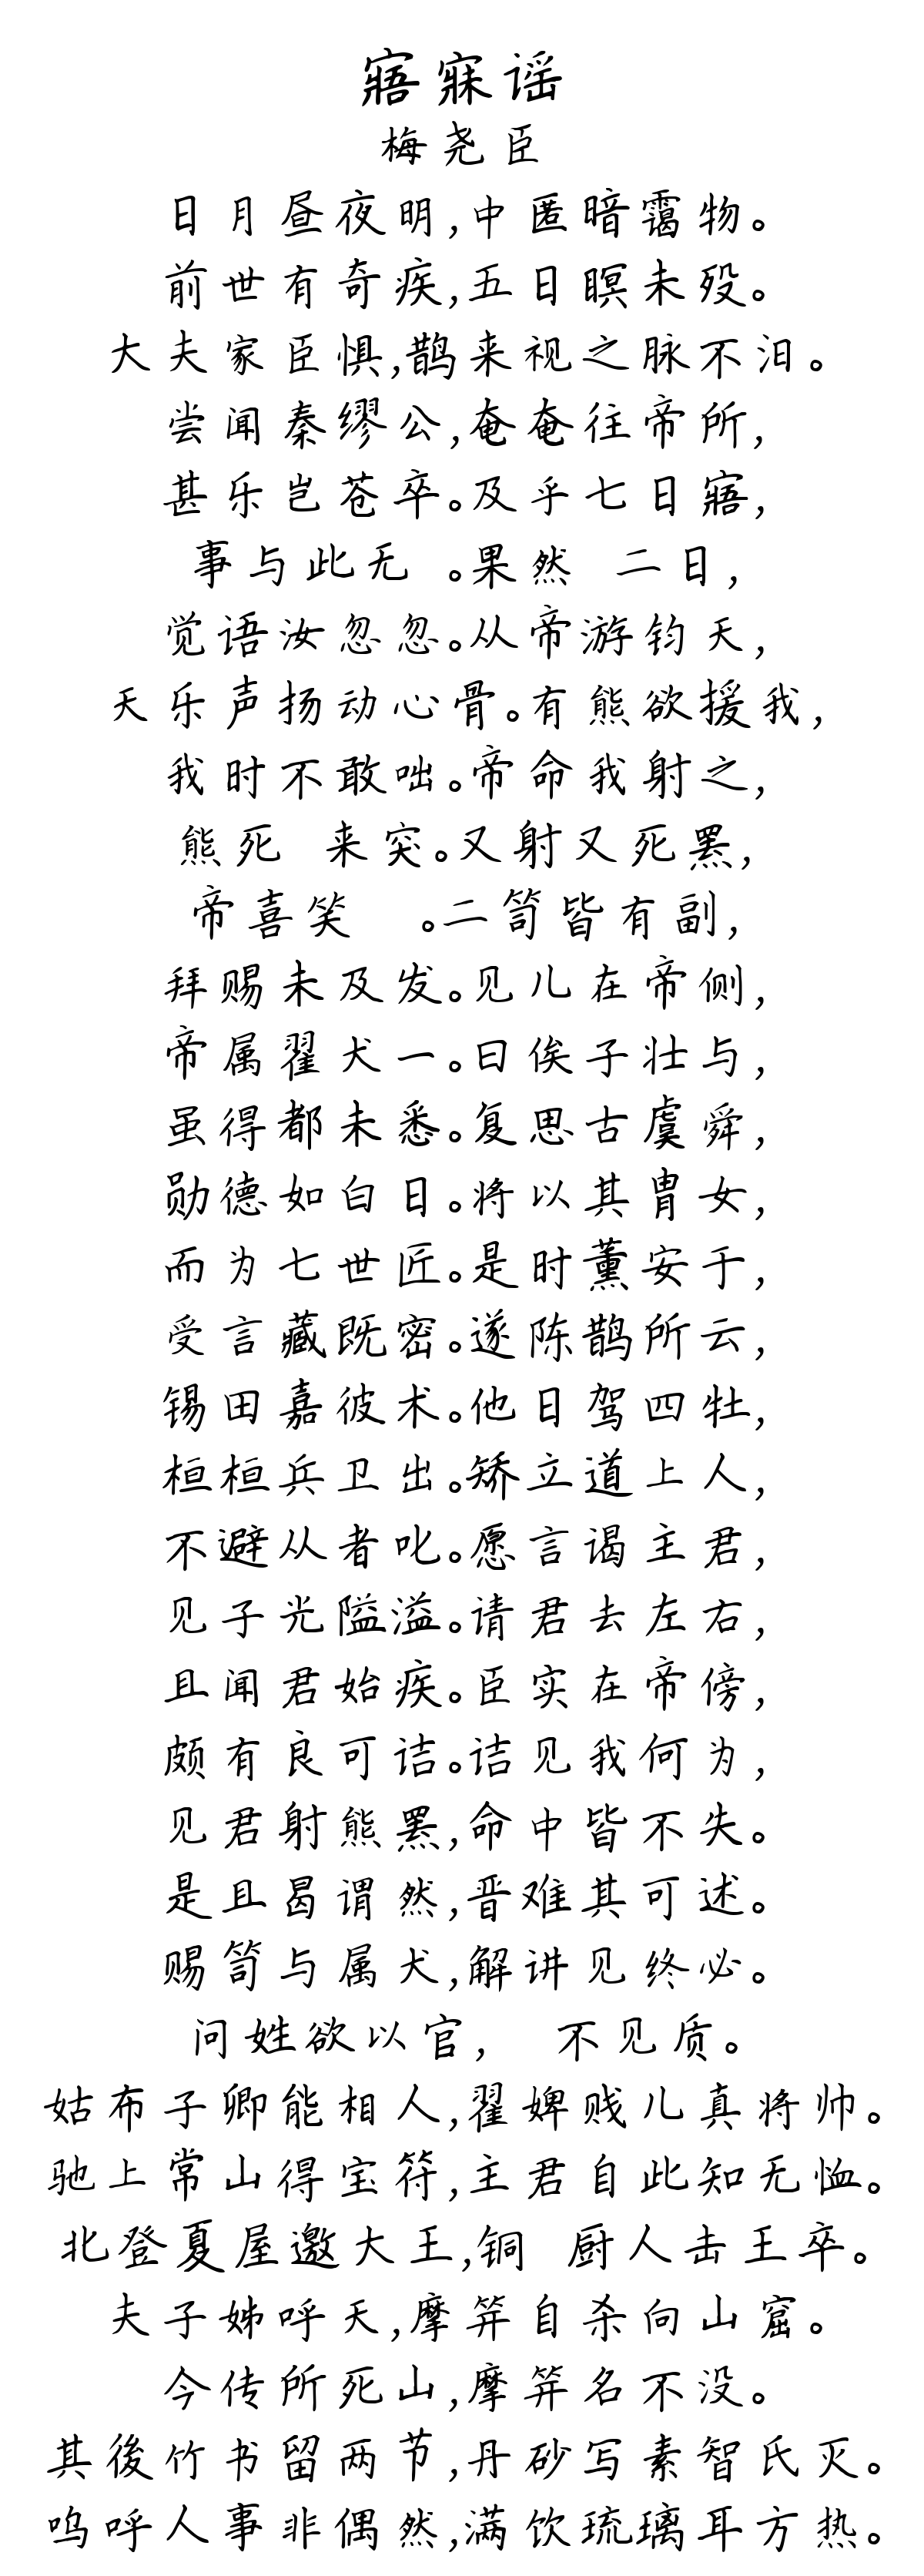 寤寐谣
梅尧臣
日月昼夜明,中匿暗霭物。
前世有奇疾,五日瞑未殁。
大夫家臣惧,鹊来视之脉不汩。
尝闻秦缪公,奄奄往帝所,
甚乐岂苍卒。及乎七日寤,
事与此无 。果然 二日,
觉语汝忽忽。从帝游钧天,
天乐声扬动心骨。有熊欲援我,
我时不敢咄。帝命我射之,
熊死 来突。又射又死罴,
帝喜笑  。二笥皆有副,
拜赐未及发。见儿在帝侧,
帝属翟犬一。曰俟子壮与,
虽得都未悉。复思古虞舜,
勋德如白日。将以其胄女,
而为七世匠。是时薰安于,
受言藏既密。遂陈鹊所云,
锡田嘉彼术。他日驾四牡,
桓桓兵卫出。矫立道上人,
不避从者叱。愿言谒主君,
见子光隘溢。请君去左右,
且闻君始疾。臣实在帝傍,
颇有良可诘。诘见我何为,
见君射熊罴,命中皆不失。
是且曷谓然,晋难其可述。
赐笥与属犬,解讲见终必。
问姓欲以官, 不见质。
姑布子卿能相人,翟婢贱儿真将帅。
驰上常山得宝符,主君自此知无恤。
北登夏屋邀大王,铜 厨人击王卒。
夫子姊呼天,摩笄自杀向山窟。
今传所死山,摩笄名不没。
其後竹书留两节,丹砂写素智氏灭。
呜呼人事非偶然,满饮琉璃耳方热。